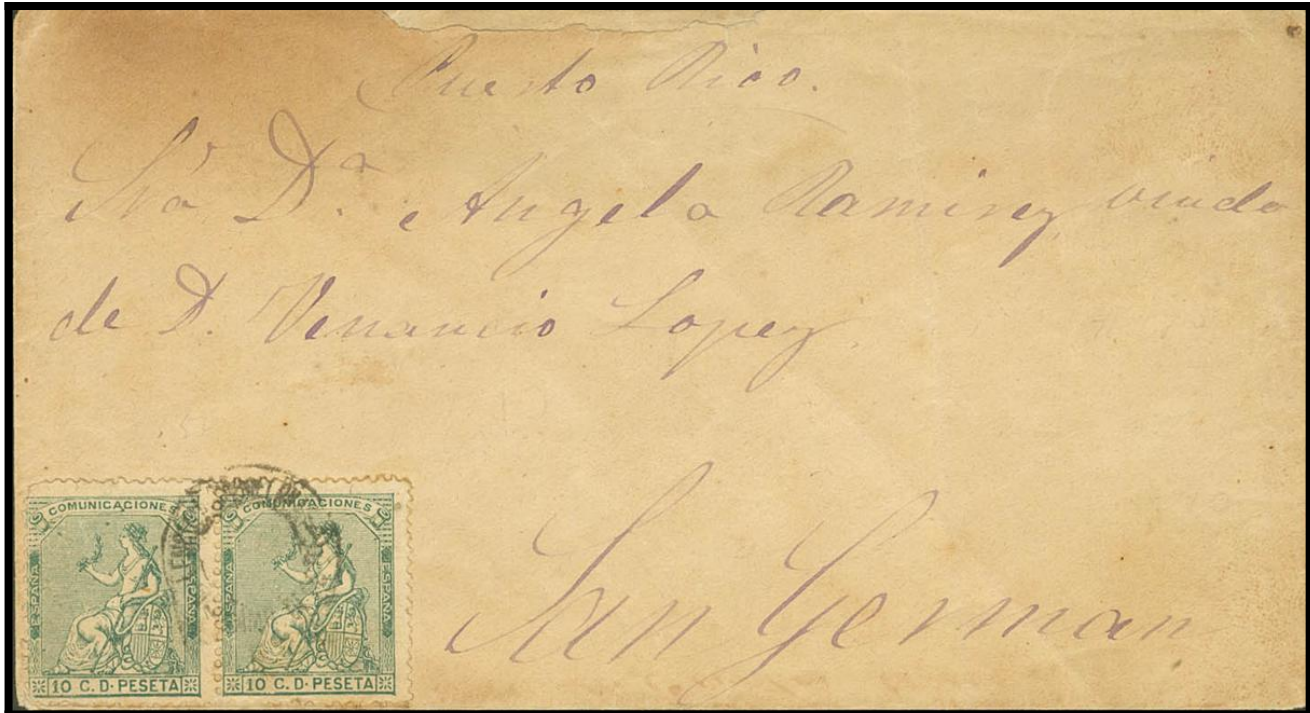 Puerto Rico.
Sra Dª. Angela Ramirez, viuda
de D. Venancio Lopez.
San German
COMUNICACIONES
ESPAÑA
ESPAÑA
10 C. D. PESETA
COMUNICACIONES
ESPAÑA
ESPAÑA
10 C. D. PESETA